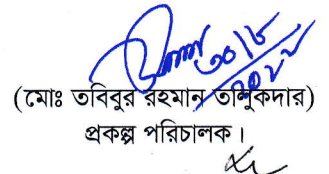 ৩০/৮
(মোঃ তবিবুর রহমান তালুকদার)
প্রকল্প পরিচালক।